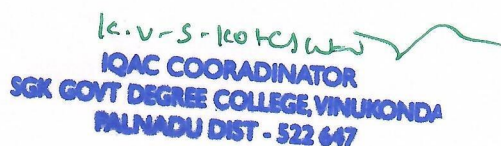 K.V.S.Koteswar
IQAC COORADINATOR
SGK GOVT DEGREE COLLEGE, VINUKONDA
PALNADU DIST - 522 647